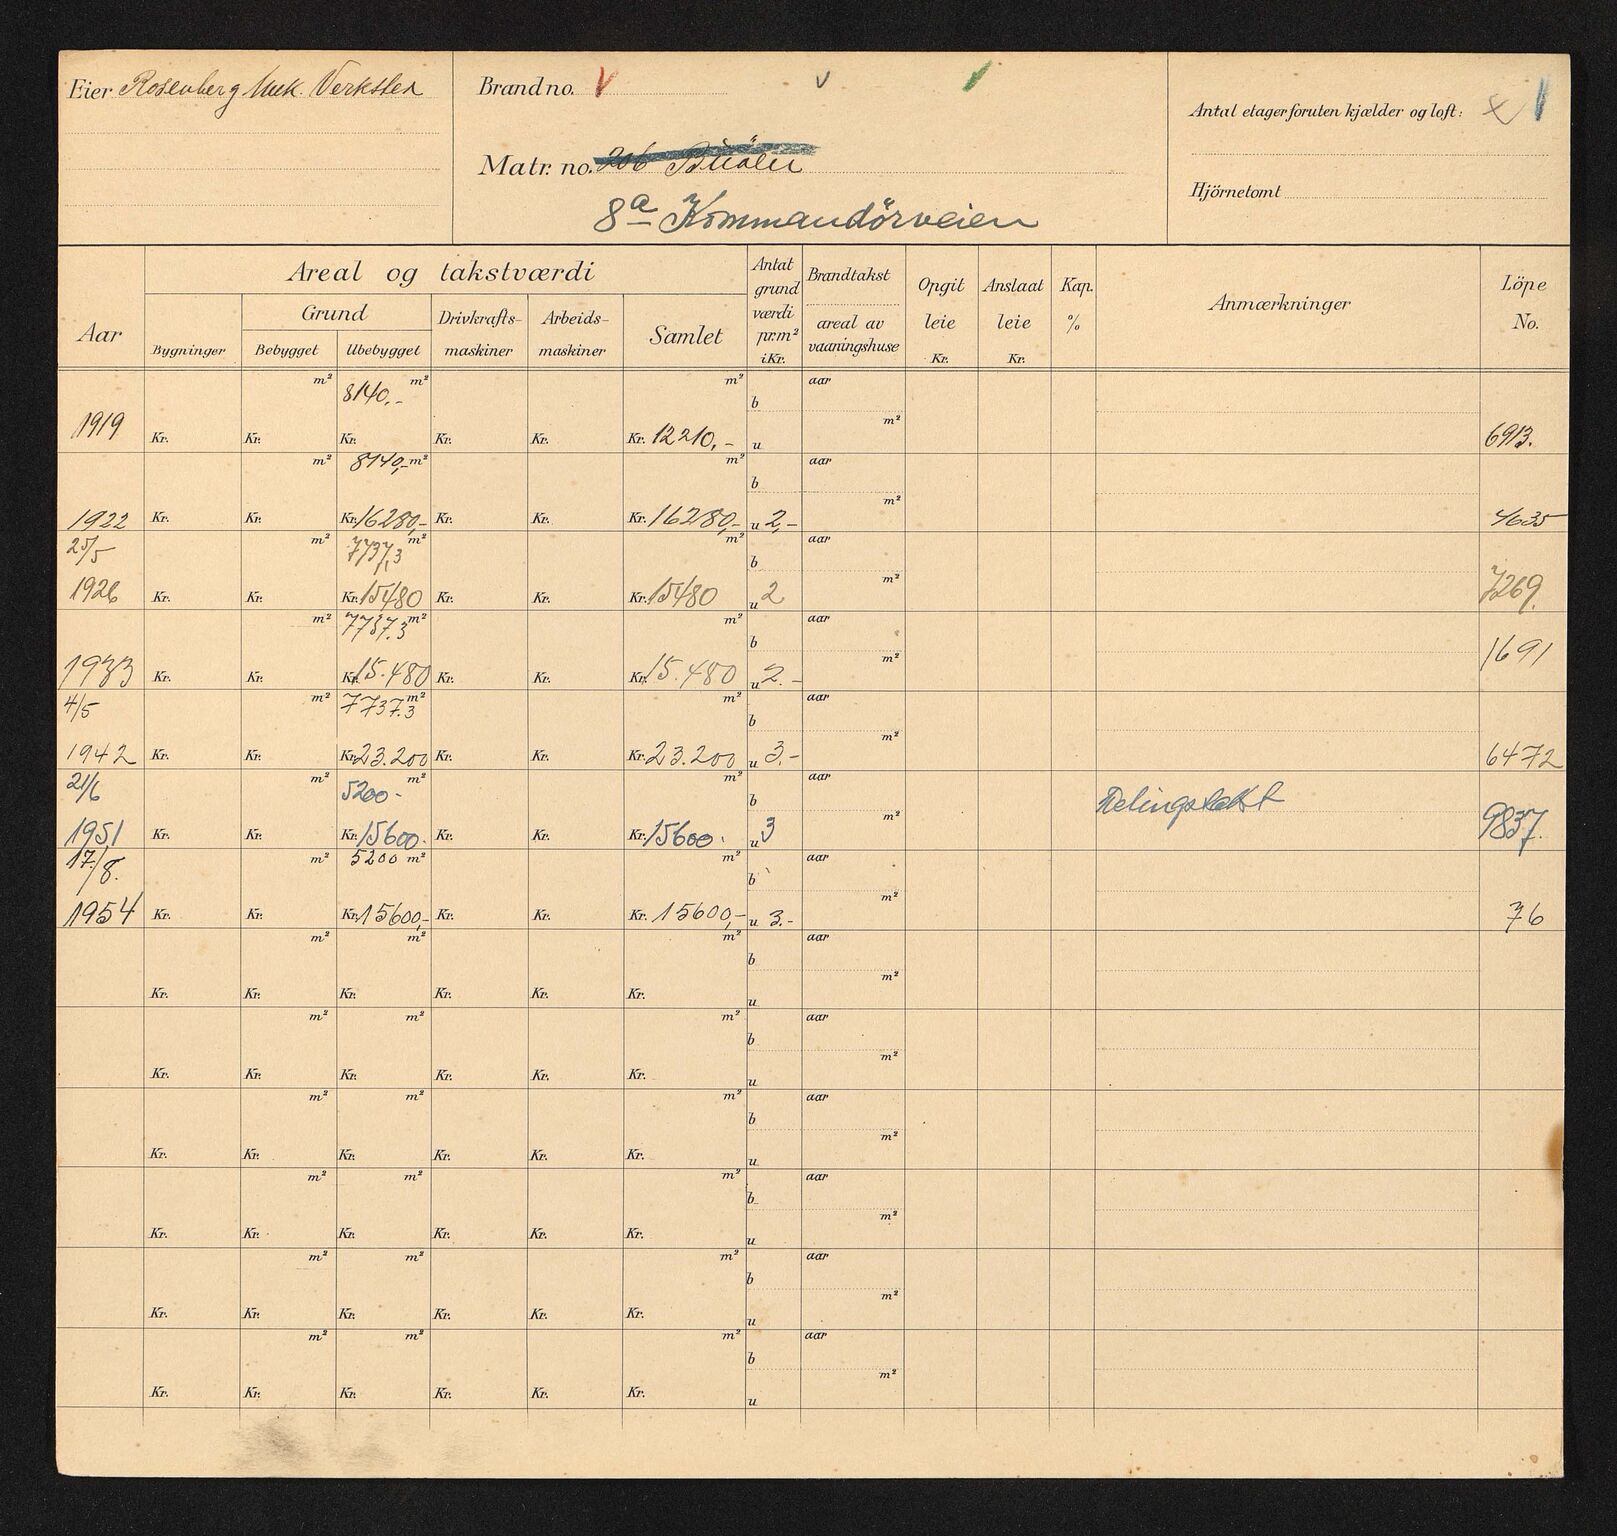 Eier Rosenberg Mek. Verksted
Brand no.
Matr. no. 206 Buöen
8a Kommandörveien
Antal etager foruten kjælder og loft:
Hjörnetomt
Aar
Areal og takstværdi
Grund
Bygninger Bebygget Ubebygget Drivkrafts-maskiner Arbeids-maskiner Samlet
Antat grund værdi pr. m² i Kr.
Brandtakst
areal av vaaningshuse
Opgit leie Kr.
Anslaat leie Kr.
Kap. %
Anmærkninger
Löpe No.
m² 8140,- m² m² aar
b
m²
1919 Kr. Kr. Kr. Kr. Kr. Kr. 12210,- u 6913.
m² 8140,- m² m² aar
b
m²
1922 Kr. Kr. Kr. 16280,- Kr. Kr. Kr. 16280,- u 2,- 4635
25/5 m² 7737,3 m² m² aar
b
m²
1926 Kr. Kr. Kr. 15480 Kr. Kr. Kr. 15480 u 2 7269.
m² 7737.3 m² m² aar
b
m²
1933 Kr. Kr. Kr. 15.480 Kr. Kr. Kr. 15.480 u 2.- 1691
4/5 m² 7737.3 m² m² aar
b
m²
1942 Kr. Kr. Kr. 23.200 Kr. Kr. Kr. 23.200 u 3.- 6472
21/6 m² 5200- m² m² aar
b Delingstakst
m²
1951 Kr. Kr. Kr. 15600. Kr. Kr. Kr. 15600. u 3 9837.
17/8. m² 5200 m² m² aar
b
m²
1954 Kr. Kr. Kr. 15600,- Kr. Kr. Kr. 15600,- u 3.- 76
m² m² m² aar
b
m²
Kr. Kr. Kr. Kr. Kr. Kr. u
m² m² m² aar
b
m²
Kr. Kr. Kr. Kr. Kr. Kr. u
m² m² m² aar
b
m²
Kr. Kr. Kr. Kr. Kr. Kr. u
m² m² m² aar
b
m²
Kr. Kr. Kr. Kr. Kr. Kr. u
m² m² m² aar
b
m²
Kr. Kr. Kr. Kr. Kr. Kr. u
m² m² m² aar
b
m²
Kr. Kr. Kr. Kr. Kr. Kr. u